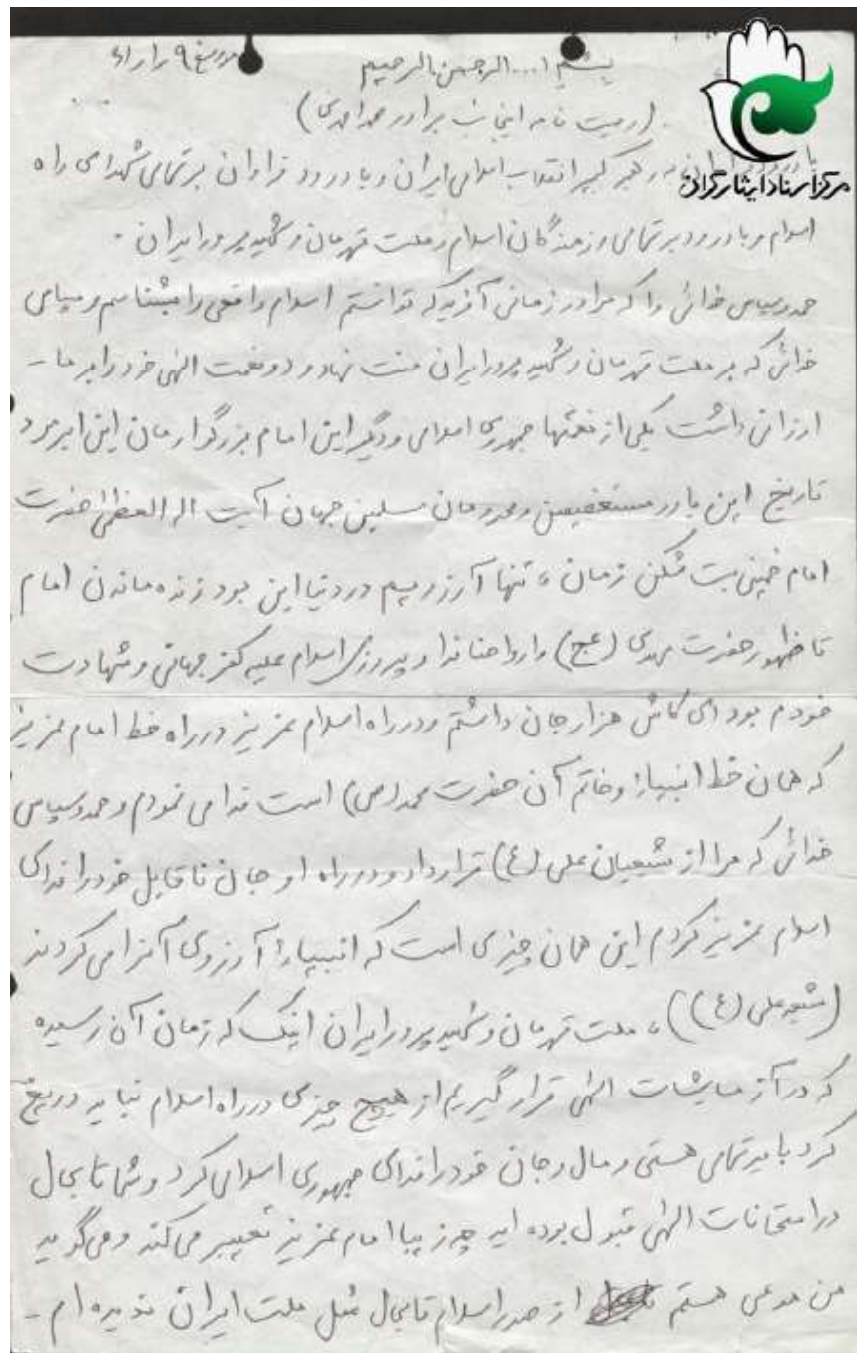 بسم ا... الرحمن الرحیم
مورخ ۹
(وصیت نامه اینجانب برادر
مرکز اسناد ایثارگران
رهبر کبیر انقلاب اسلامی ایران و با درود فراوان بر تمامی شهدای راه
اسلام و با درود بر تمامی رزمندگان اسلام و ملت قهرمان و شهید پرور ایران -
حمد و سپاس خدائی را که مرا در زمانی آفرید که توانستم اسلام واقعی را بشناسم و سپاس
خدائی که بر ملت قهرمان و شهید پرور ایران منت نهاد و دو نعمت الهی خود را بر ما -
ارزانی داشت یکی از نعمتها جمهوری اسلامی و دیگر این امام بزرگوارمان این ابرمرد
تاریخ این یاور مستضعفین و محرومان مسلمین جهان آیت اله العظمی حضرت
امام خمینی بت شکن زمان ، تنها آرزویم در دنیا این بود زنده ماندن امام
تا ظهور حضرت مهدی (عج) و ارواحنا فدا و پیروزی اسلام علیه کفر جهانی و شهادت
خودم بود ای کاش هزار جان داشتم و در راه اسلام عزیز و در راه خط امام عزیز
که همان خط انبیاء و خاتم آن حضرت محمد (ص) است فدا می نمودم و حمد و سپاس
خدائی که مرا از شیعیان علی (ع) قرار داد و در راه او جان ناقابل خود را فدای
اسلام عزیز کردم این همان چیزی است که انبیاء آرزوی آنرا می کردند
(شیعه علی (ع)) ، ملت قهرمان و شهید پرور ایران اینک که زمان آن رسیده
که در آزمایشات الهی قرار گیریم از هیچ چیزی در راه اسلام نباید دریغ
کرد باید تمامی هستی و مال و جان خود را فدای جمهوری اسلامی کرد و شما تا بحال
در امتحانات الهی قبول بوده اید چه زیبا امام عزیز تعبیر می کند و می گوید
من مدعی هستم از صدر اسلام تا بحال مثل ملت ایران ندیده ام -